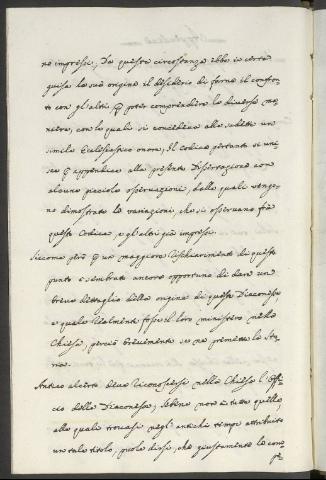 no impressi; Da questa circostanza ebbe in certa
guisa la sua origine il desiderio di farne il confron-
to con gl'altri p poter comprendere la diversa ma-
niera, con la quale si concedeva alle suddette un
simile Ecclesiastico onore; Il codice pertanto si uni-
sce p appendice alla presente Dissertazione con
alcune picciole osservazioni, dalle quali vengo-
no dimostrate le variazioni, che si osservano fra
questo Codice, e gl'altri già impressi.
Siccome però p un maggiore rischiarimento di questo
punto è sembrato ancora opportuno di dare un
breve dettaglio della origine di queste Diaconesse,
e quale realmente fosse il loro ministero nella
Chiesa, perciò brevemente se ne premette la Sto-
ria.
Antico al certo deve riconoscersi nella Chiesa l'Offi-
cio delle Diaconesse, sebene non a tutte quelle,
alle quali trovasi negl'antichi tempi attribuito
un tale titolo, puole dirsi, che giustamente le con-
p